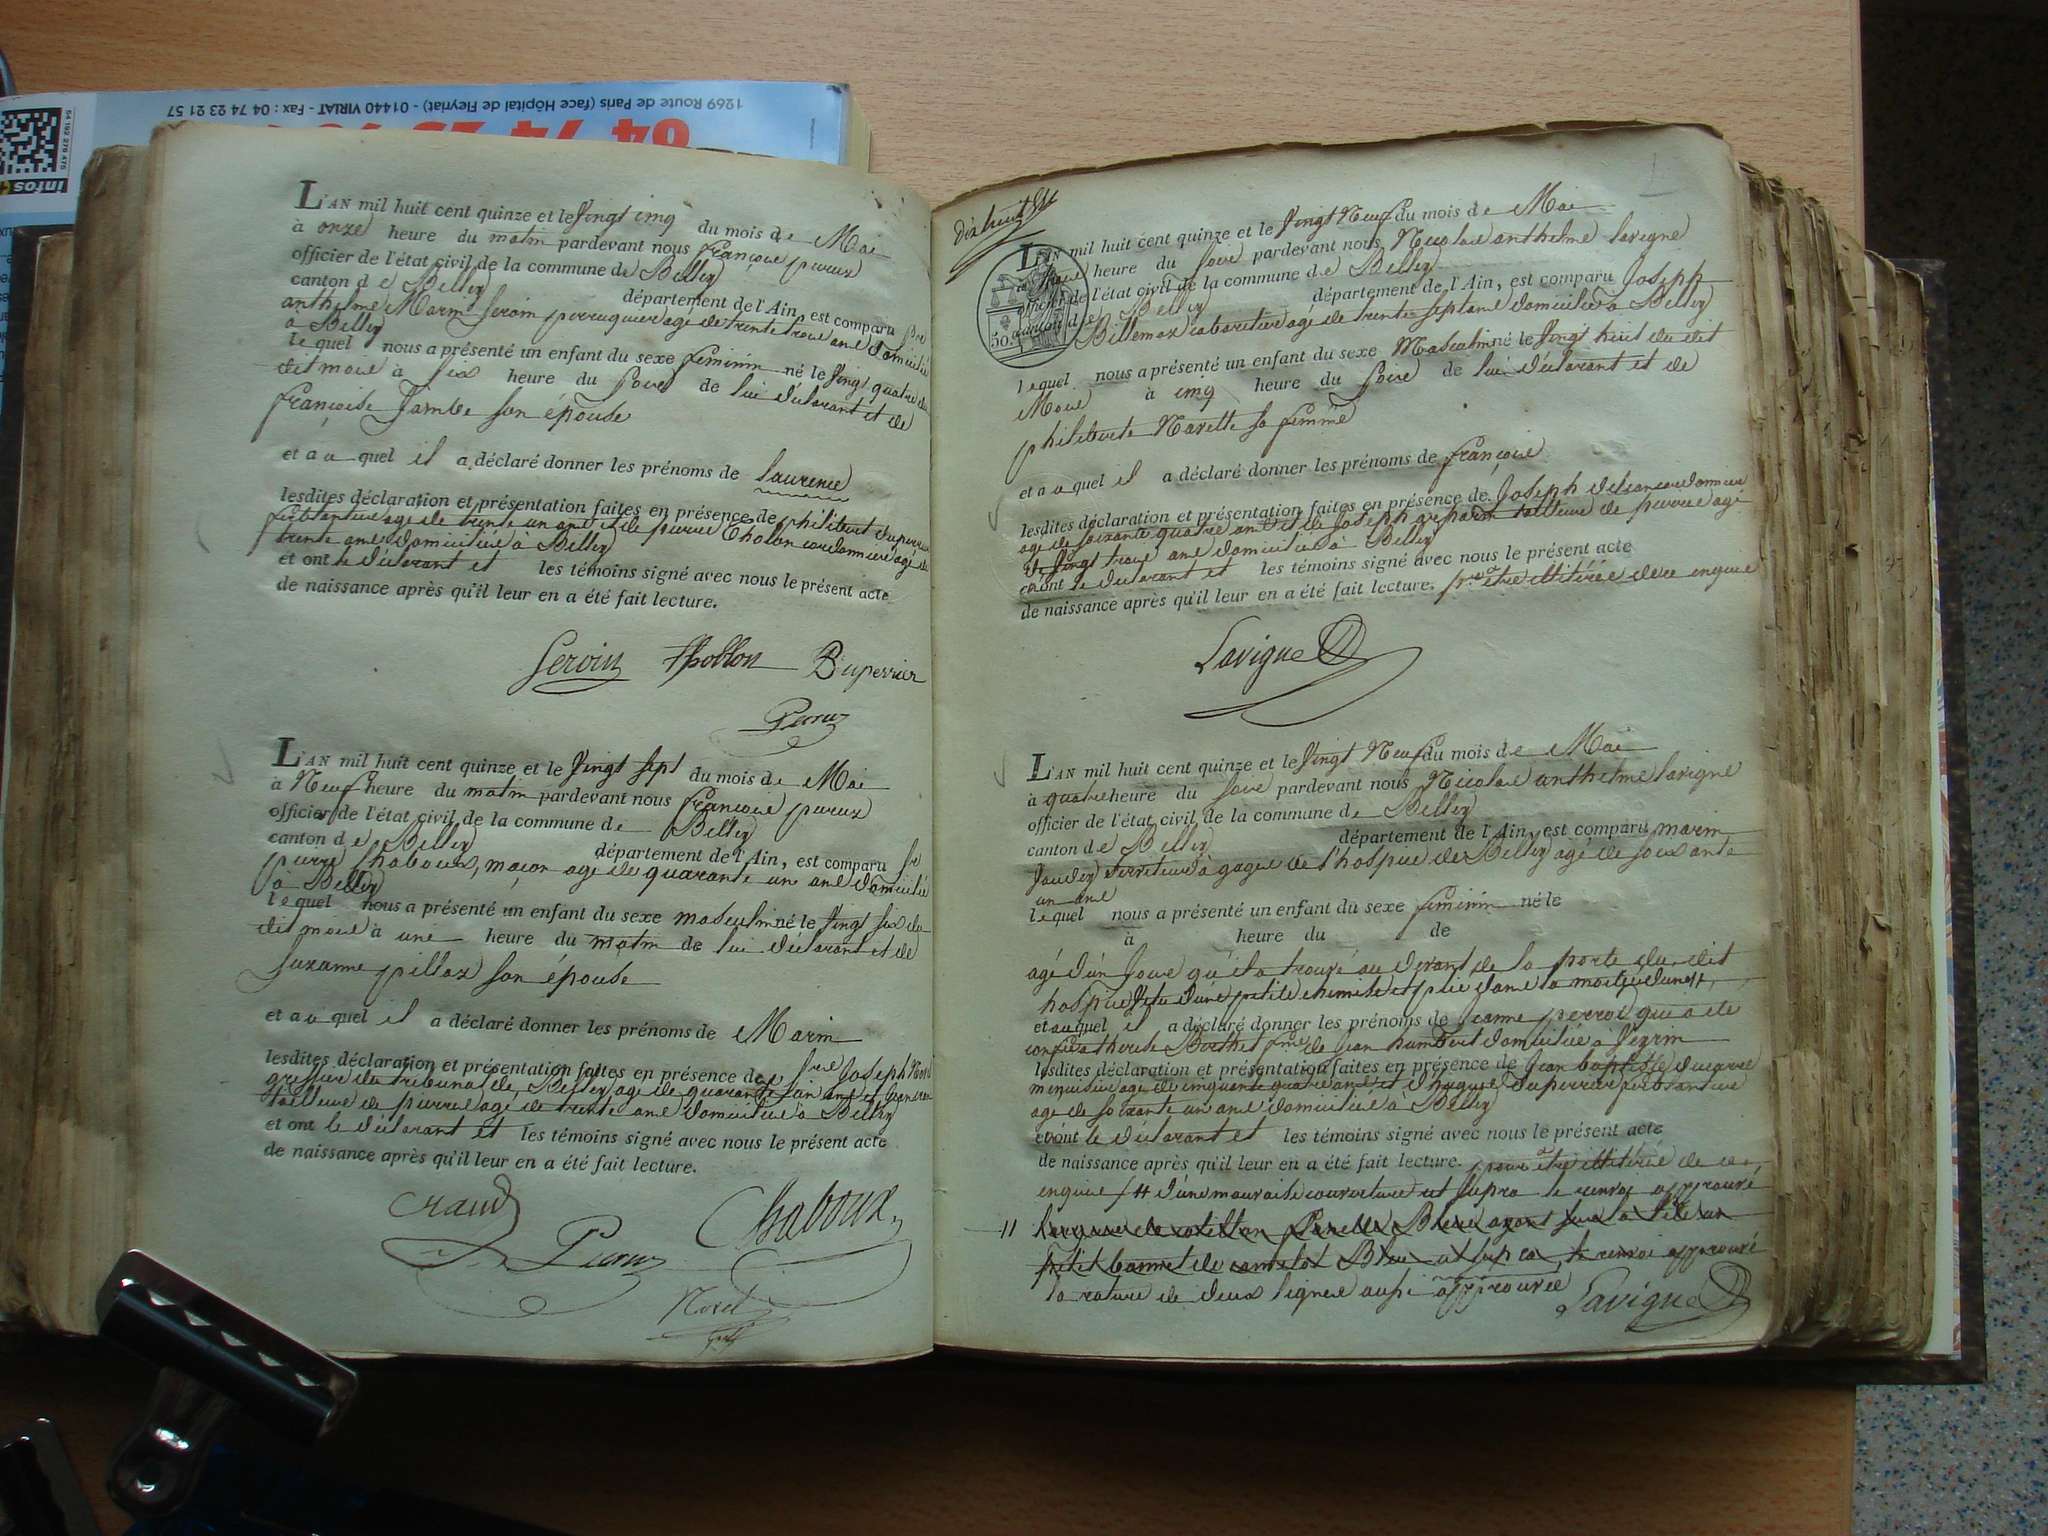 1269 Route de Paris (face Hôpital de Fleyriat) - 01440 VIRIAT - Fax : 04 74 23 21 57
infos+
L'AN mil huit cent quinze et le vingt cinq du mois de Mai
à onze heure du matin pardevant nous françois pereux
officier de l'état civil de la commune de Belley
canton de Belley département de l'Ain, est comparu
anthelme Marin Seroin perruquier agé de trente trois ans domicilié
à Belley
lequel nous a présenté un enfant du sexe feminin né le vingt quatre du
dit mois à six heure du soir de lui déclarant et de
françoise Jambe son épouse
et auquel il a déclaré donner les prénoms de laurence
lesdites déclaration et présentation faites en présence de philibert duperrier
ferblantier agé de trente un ans et de pierre Thobon cordonnier agé de
trente ans domiciliés à Belley
et ont le déclarant et les témoins signé avec nous le présent acte
de naissance après qu'il leur en a été fait lecture.
Seroin Thobbon Duperrier
L'AN mil huit cent quinze et le vingt sept du mois de Mai
à Neuf heure du matin pardevant nous françois pereux
officier de l'état civil de la commune de Belley
canton de Belley département de l'Ain, est comparu
pierre Chaboux, maçon agé de quarante un ans domicilié
à Belley
lequel nous a présenté un enfant du sexe masculin né le vingt six du
dit mois à une heure du matin de lui déclarant et de
suzanne pillox son épouse
et auquel il a déclaré donner les prénoms de Marin
lesdites déclaration et présentation faites en présence de Joseph
greffier du tribunal de Belley agé de quarante ans et
tailleur de pierre agé de trente ans domiciliés à Belley
et ont le déclarant et les témoins signé avec nous le présent acte
de naissance après qu'il leur en a été fait lecture.
Chaboux
dix huit
L'AN mil huit cent quinze et le vingt Neuf du mois de Mai
à heure du soir pardevant nous Nicolas anthelme lavigne
officier de l'état civil de la commune de Belley
canton de Belley département de l'Ain, est comparu Joseph
Billemaz cabaretier agé de trente sept ans domicilié à Belley
lequel nous a présenté un enfant du sexe Masculin né le vingt huit du dit
Mois à cinq heure du soir de lui déclarant et de
philiberte Navette sa femme
et auquel il a déclaré donner les prénoms de françois
lesdites déclaration et présentation faites en présence de Joseph cordonnier
agé de soixante quatre ans et de Joseph tailleur de pierre agé
de vingt trois ans domiciliés à Belley
et ont le déclarant et les témoins signé avec nous le présent acte
de naissance après qu'il leur en a été fait lecture. être illitérés de ce enquis
Lavigne
L'AN mil huit cent quinze et le vingt Neuf du mois de Mai
à quatre heure du soir pardevant nous Nicolas anthelme lavigne
officier de l'état civil de la commune de Belley
canton de Belley département de l'Ain, est comparu marin
serviteur à gages de l'hospice de Belley agé de soixante
un ans
lequel nous a présenté un enfant du sexe feminin né le
à heure du de
agé d'un jour qu'il a trouvé au devant de la porte du dit
hospice vetu d'une petite chemise et plié dans la moitié d'une #
et auquel il a déclaré donner les prénoms de jeanne perrol qui a été
confié à therese Berthet fme de jean humbert domicilié à
lesdites déclaration et présentation faites en présence de Jean baptiste
menuisier agé de cinquante quatre ans et d'hugues duperrier ferblantier
agé de soixante un ans domiciliés à Belley
et ont le déclarant et les témoins signé avec nous le présent acte
de naissance après qu'il leur en a été fait lecture. pour être illitérés de ce
enquis / # d'une mauvaise couverture et le renvoi approuvé
petit bonnet de camelot Bleu le renvoi approuvé
la rature de deux lignes aussi approuvée Lavigne